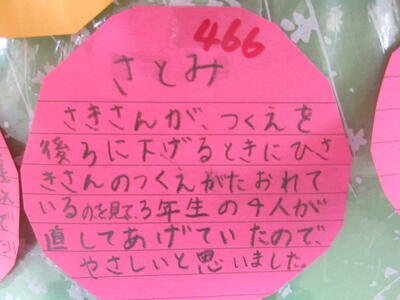 466
さとみ
さきさんが、つくえを
後ろに下げるときにひさ
きさんのつくえがたおれて
いるのを見て、3年生の4人が
直してあげていたので、
やさしいと思いました。